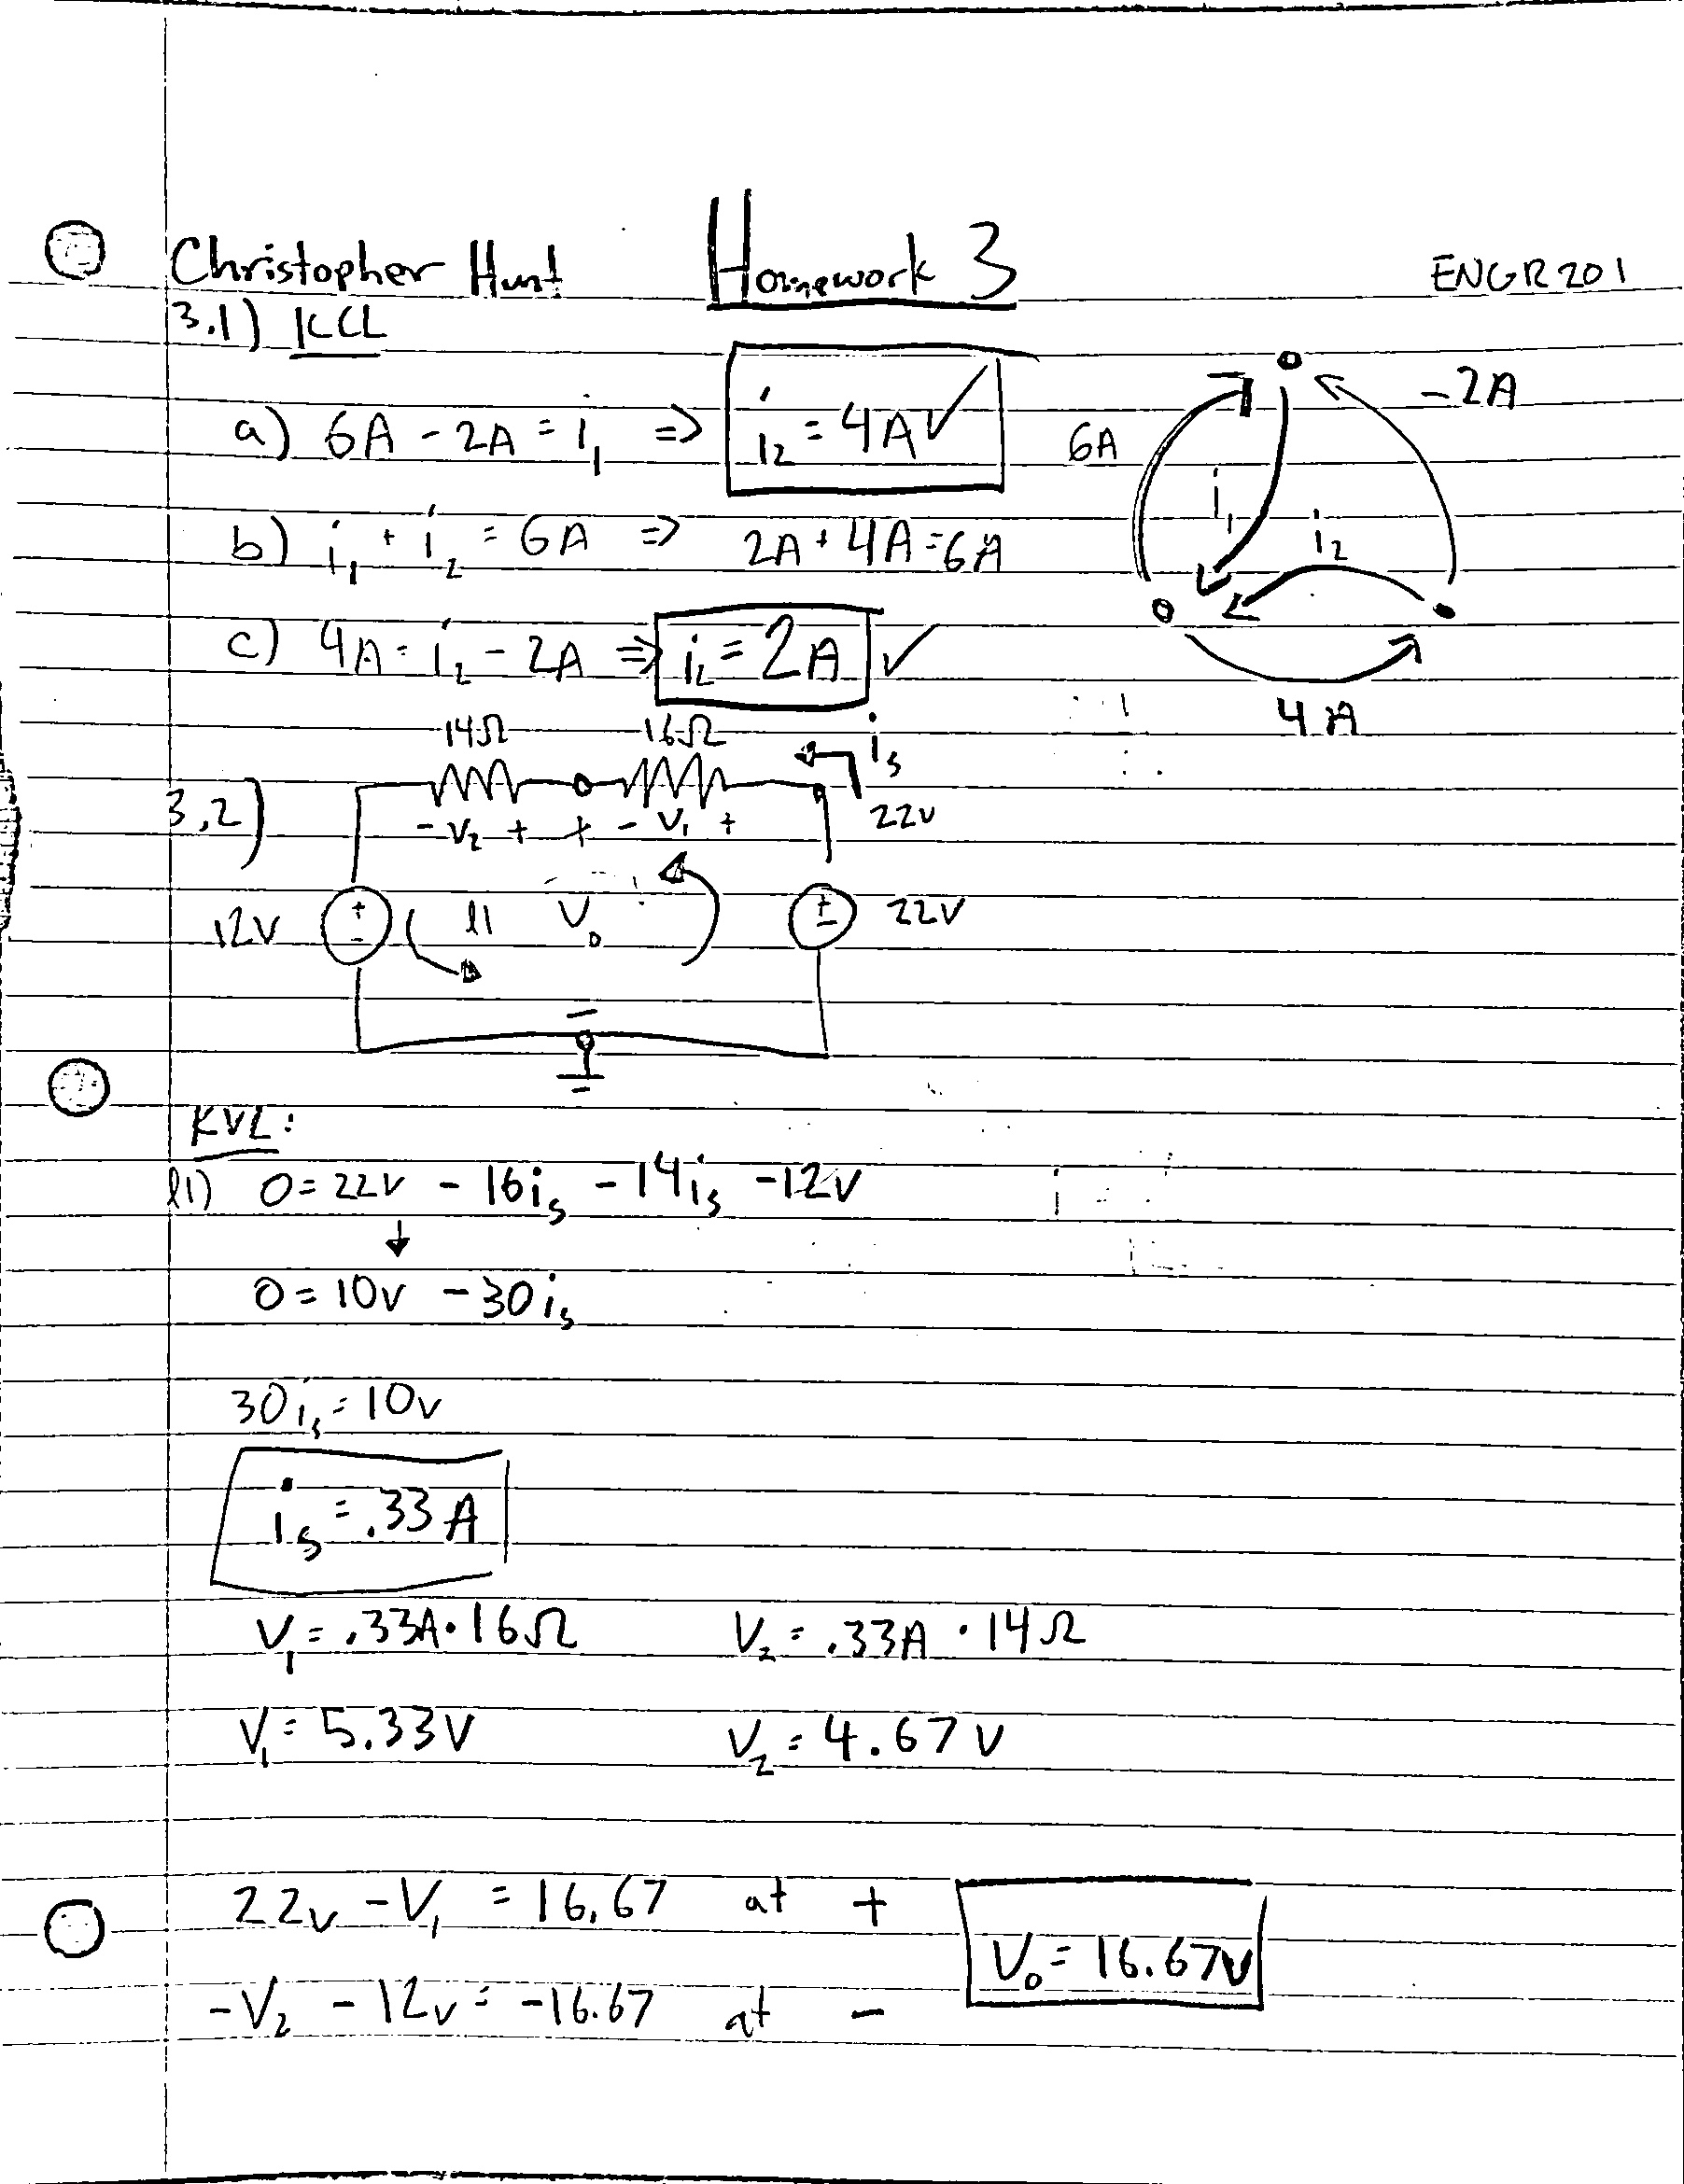 Christopher Hunt Homework 3 ENGR201
3.1) KCL
a) 6A - 2A = i₁ => i₂ = 4A ✓
6A
-2A
i₁
i₂
4A
b) i₁ + i₂ = 6A => 2A + 4A = 6A
c) 4A = i₂ - 2A => i₂ = 2A ✓
3,2)
14Ω 16Ω iₛ
- V₂ + + - V₁ + 22v
12V + - l1 V₀ + - 22V
-
KVL:
l1) 0 = 22v - 16iₛ - 14iₛ - 12v
↓
0 = 10v - 30iₛ
30iₛ = 10v
iₛ = .33A
V₁ = .33A · 16Ω V₂ = .33A · 14Ω
V₁ = 5.33V V₂ = 4.67V
22v - V₁ = 16.67 at +
V₀ = 16.67V
-V₂ - 12v = -16.67 at -